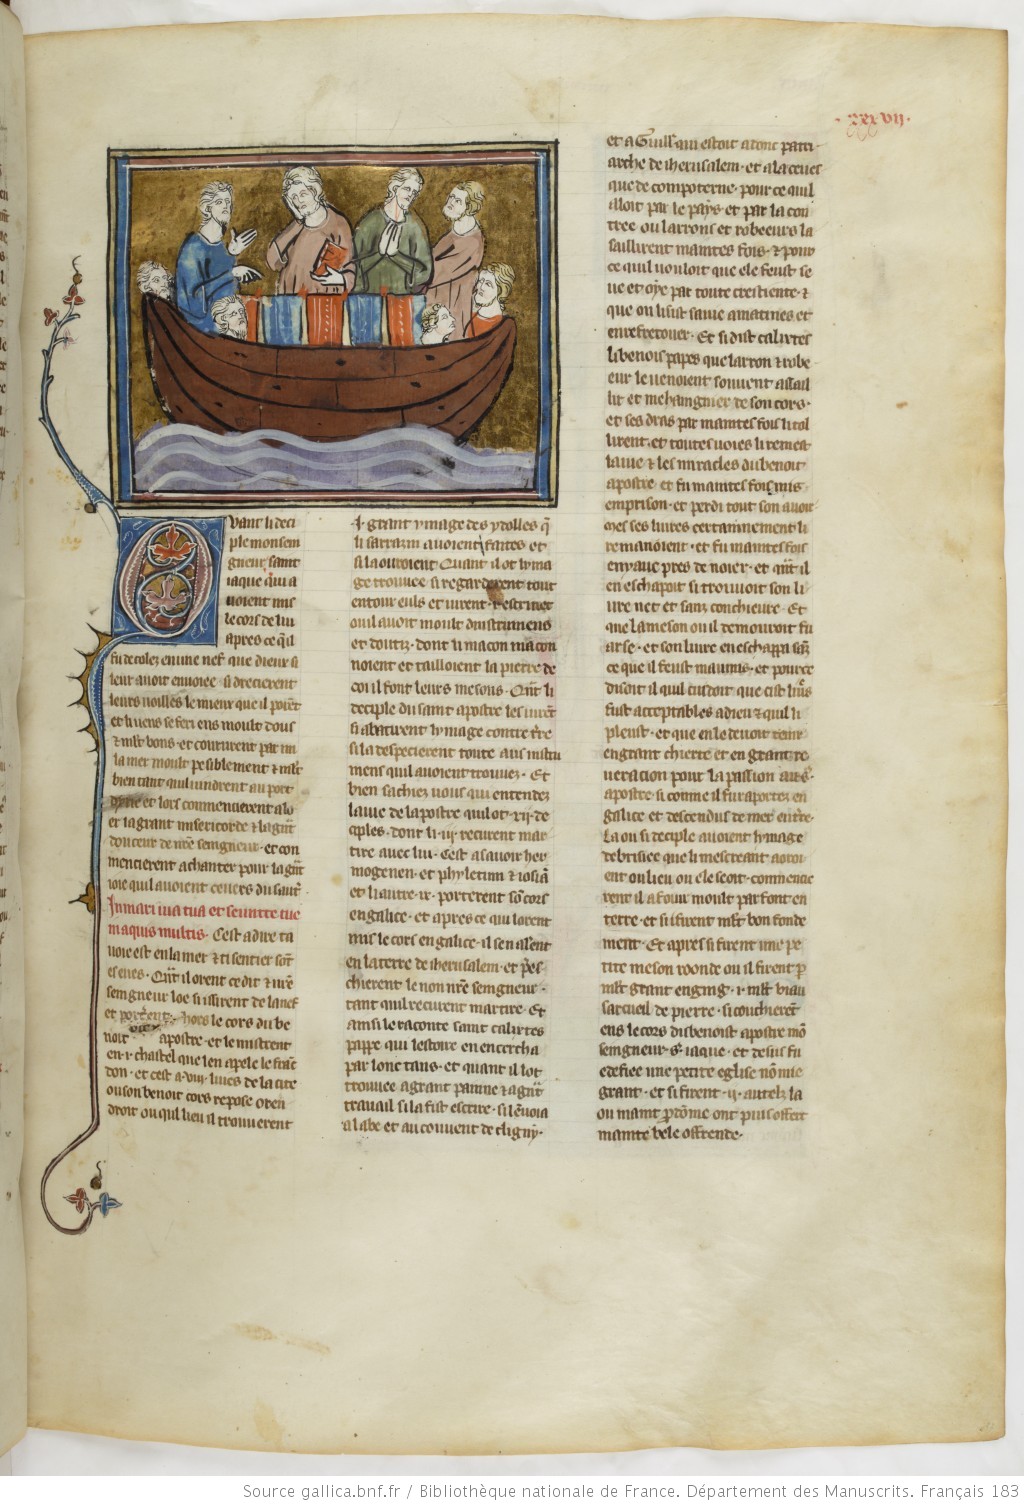 .xxxvij.
Quant li deci
ple monsein
gneur saint
iaque qui a
uoient mis
le cors de lui
apres ce quil
fu decolez en une nef que dieux si
leur auoit enuoiee si drecierent
leurs uoilles le mieux que il porent
et li uens se feri ens moult dous
et mlt bons et coururent par mi
la mer moult pesiblement et mlt
bien tant quil uindrent au port
et lors commencierent a lo
er la grant misericorde et la gnt
douceur de nre seigneur et con
mencierent a chanter pour la gnt
ioie quil auoient ce uers du saut
In mari uia tua et semite tue
in aquis multis. Cest a dire ta
uoie est en la mer et ti sentier sont
es eues. Qnt il orent ce dit et nre
seingneur loe si issirent de la nef
et porterent hors le cors du be
noit apostre et le mistrent
en .i. chastel que len apele le franc
don et cest a .viij. liues de la cite
ou son benoit cors repose oren
droit ou quel lieu il trouuerent
.i. grant ymage des ydolles q
li sarrazin auoient faites et
si laouroient Quant il ot lyma
ge trouuee si regarderent tout
entour euls et uirent
ou il auoit moult dinstrumens
et doutiz dont li macon macon
noient et tailloient la pierre de
coi il font leurs mesons. Qnt li
deciple du saint apostre les uirent
si abatirent lymage contre tre
si la despecierent toute aus instru
mens quil auoient trouuez. Et
bien sachiez uous qui entendez
la uie de lapostre quil ot .xii. de
ciples dont li .iij. recurent mar
tire auec lui. Cest a sauoir her
mogenen et phyletum et iosian
et li autre .ix. porterent son cors
en galice et apres ce qui lorent
mis le cors en galice il sen alerent
en la terre de iherusalem et pres
chierent le non nre seingneur
tant quil recurent martire. Et
ainsi le raconte saint calixtes
pappe qui lestoire en encercha
par lonc tans et quant il lot
trouuee a grant painne et a gnt
trauail si la fist escrire si lenuoia
a labe et au couuent de cligny.
et a Guill qui estoit adonc patri
arche de iherusalem et a la ceues
que de compoterne pour ce quil
illoit par le pays et par la con
tree ou larrons et robeeurs la
saillirent maintes fois et pour
ce quil uouloit que ele feust se
ue et oye par toute crestiente et
que on lisist sa uie a matines et
en refretouer. Et si dist calixtes
li benois papes que larron et robe
eur le uenoient souuent assail
lir et mehaingnier de son cors
et ses dras par maintes fois li tol
lirent et toutes uoies li remest
la uie et les miracles du benoit
apostre et fu maintes fois mis
em prison et perdi tout son auoir
mes ses liures certainnement li
remanoient et fu maintes fois
en yaue pres de noier et qnt il
en eschapoit si trouuoit son li
ure net et sanz conchieure. Et
que la meson ou il demouroit fu
arse et son liure en eschappa sanz
ce que il feust maumis et pource
disoit il quil cuidoit que cist liures
fust acceptables a dieu et quil li
pleust et que en le deuoit tenir
en grant chierte et en grant re
ueracion pour la passion au s.
apostre si comme il fu raportez en
galice et descendus de mer en tre.
La ou si deciple auoient lymage
debrisiee que li mescreant aoroi
ent ou lieu ou ele seoit commencie
rent il a fouir moult parfont en
terre et si firent mlt bon fonde
ment. Et apres si firent une pe
tite meson roonde ou il firent p
mlt grant enging .i. mlt biau
sarcueil de pierre si couchierent
ens le cors du benoist apostre mon
seingneur s. iaque et desus fu
edefiee une petite eglise non mie
grant et si firent .ii. autelz la
ou maint pdome ont puis offert
mainte bele offrende.
Source gallica.bnf.fr / Bibliothèque nationale de France. Département des Manuscrits. Français 183